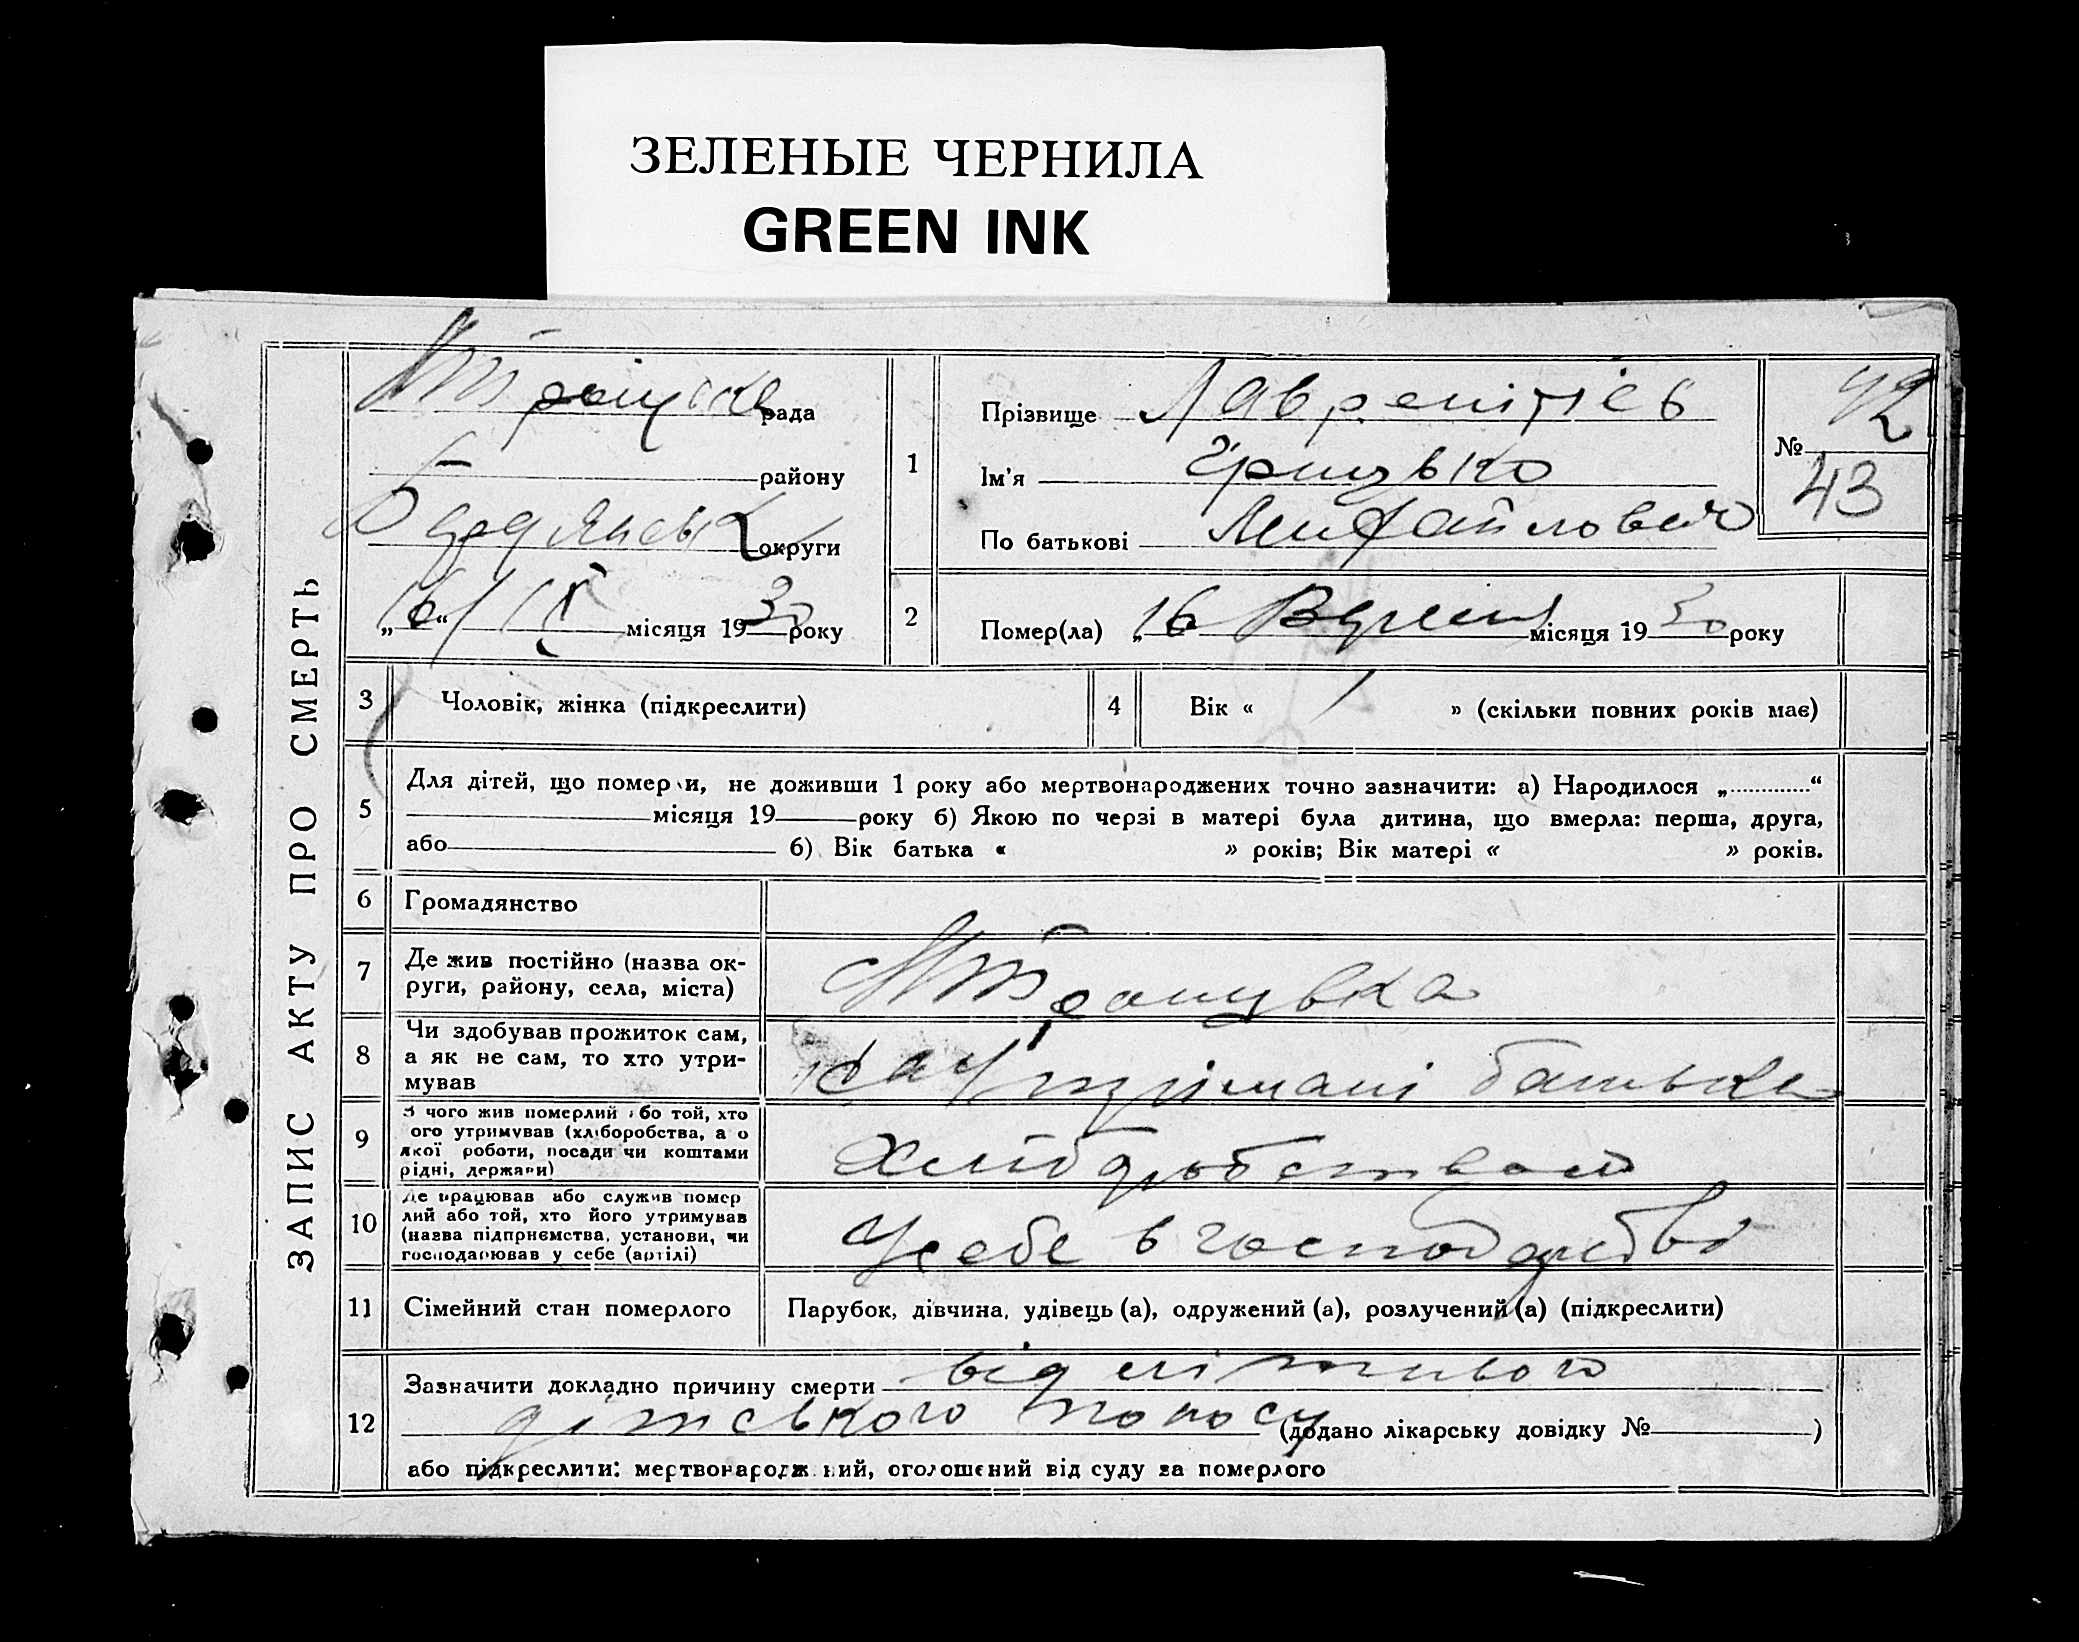 ЗЕЛЕНЫЕ ЧЕРНИЛА
GREEN INK
ЗАПИС АКТУ ПРО СМЕРТЬ
рада
району
округи
„16“ IX місяця 1930 року
1
Прізвище Лаврентієв
Ім'я Грицько
По батькові Михайлович
№ 42
43
2
Помер(ла) „16 Вересня місяця 1930 року
3
Чоловік, жінка (підкреслити)
4
Вік « 1 » (скільки повних років має)
5
Для дітей, що померли, не доживши 1 року або мертвонароджених точно зазначити: а) Народилося „.............“
місяця 19 року б) Якою по черзі в матері була дитина, що вмерла: перша, друга,
або б) Вік батька « » років; Вік матері « » років.
6
Громадянство
7
Де жив постійно (назва ок-
руги, району, села, міста)
Троицька
8
Чи здобував прожиток сам,
а як не сам, то хто утри-
мував
на утрімані батька
9
З чого жив померлий або той, хто
ого утримував (хліборобства, а о
якої роботи, посади чи коштами
рідні, держави)
Хліборобством
10
Де працював або служив помер
лий або той, хто його утримував
(назва підприємства, установи, чи
господарював у себе (артілі)
У себе в господарстві
11
Сімейний стан померлого
Парубок, дівчина, удівець (а), одружений (а), розлучений (а) (підкреслити)
12
Зазначити докладно причину смерти від літнього
дітського поносу (додано лікарську довідку № )
або підкреслити: мертвонароджений, оголошений від суду за померлого